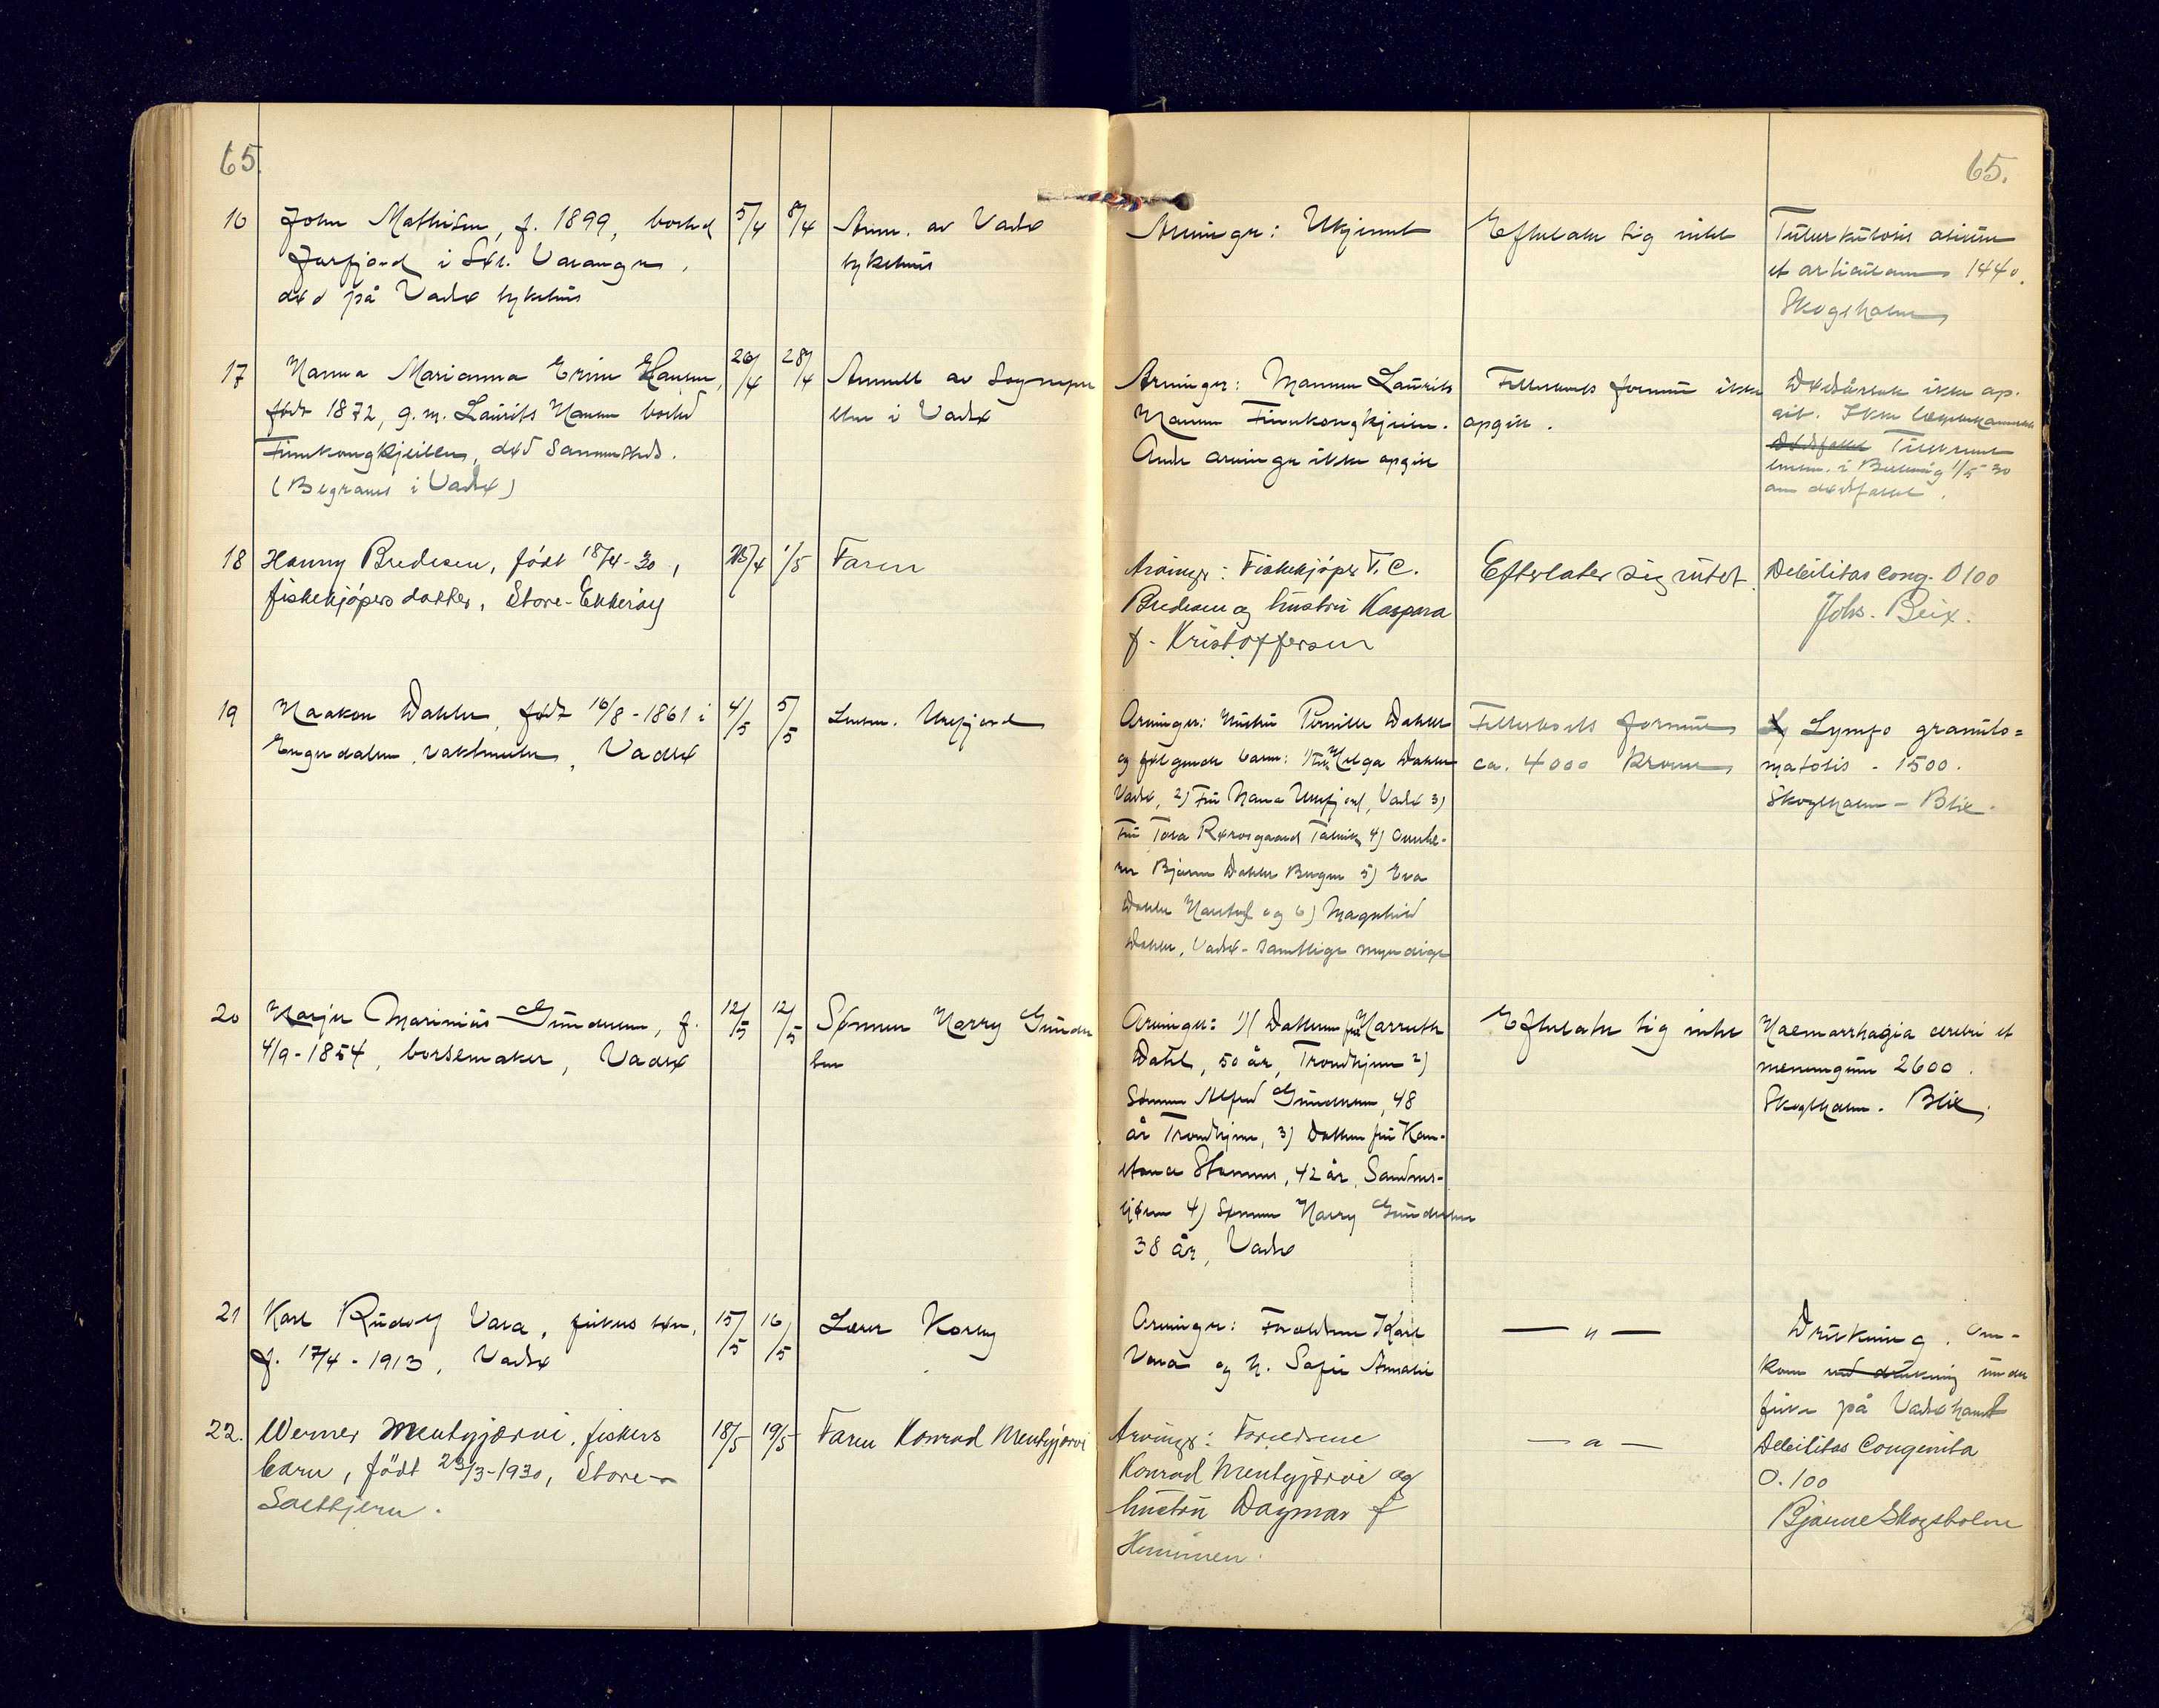 65.
65.
16 John Mathisen, f. 1899, bosted 5/4 8/4 Anm. av Vadsø
Jarfjord i Sør-Varanger,
sykehus
død på Vadsø sykehus
Arvinger: Ukjennt
Efterlater sig intet
Tuberkulosis
et articulorum 1440.
Skogsholm
17 Hanna Marianna Hansen, 26/4 28/4 Anmeldt av Sognepre
født 1872, g.m. Laurits Hansen bosted
sten i Vadsø
Finnkongkjeilen, død sammesteds.
(Begraves i Vadsø)
Arvinger: Mannen Laurits
Hansen Finnkongkjeilen.
Andre arvinger ikke opgitt
Fellesboets formue ikke
opgitt.
Dødsårsak ikke op-
gitt. Ikke
Dødsfallet
lensm. i 1/5-30
om dødsfallet.
18 Hanny Bredesen, født 18/4-30, 23/4 1/5 Faren
fiskekjøpers datter, Store-Ekkerøy
Arvinger: Fiskekjøper T. C.
Bredesen og hustru Kaspara
f. Kristoffersen
Efterlater sig intet.
Debilitas Cong. 0100
Johs. Beix.
19 Haakon Dahler, født 16/8-1861 i 4/5 5/5 Lensm. Urfjord
Engerdalen, vaktmester, Vadsø
Arvinger: Hustru Pernille Dahler
og følgende barn: 1) Helga Dahler
Vadsø, 2) Fru Urfjord, Vadsø 3)
Fru Tora Rørosgaard Talvik 4)
Bjarne Dahler Bergen 5) Eva
Dahler Harstad og 6) Magnhild
Dahler, Vadsø - samtlige myndige
Fellesboets formue
ca. 4000 kroner
Lymfo granulo=
matosis - 1500.
Skogsholm - Blix.
20 Marinius Gundersen, f. 12/5 12/5 Sønnen Harry Gunder
4/9-1854, børsemaker, Vadsø
sen
Arvinger: 1) Datteren fru
Dahl, 50 år, Trondhjem 2)
Sønnen Alfred Gundersen, 48
år Trondhjem, 3) Datteren fru Kon-
stance Stamnes, 42 år, Sandnes-
sjøen 4) Sønnen Harry Gundersen
38 år, Vadsø
Efterlater sig intet
Haemorrhagia cerebri et
meningum 2600.
Skogsholm. Blix.
21 Karl Rudolf Vara, fiskers søn, 15/5 16/5 Lærer Korby
f. 17/4-1913, Vadsø
Arvinger: Foreldrene Karl
Vara og h. Sofie Amalie
— " —
Drukning. Om-
kom ved drukning under
fiske på Vadsø havn
22. Werner Mentyjærvi, fiskers 18/5 19/5 Faren Konrad Mentyjærvi
barn, født 23/3-1930, Store-
Saltkjern.
Arvinger: Foreldrene
Konrad Mentyjærvi og
hustru Dagmar f
Henninen.
— " —
Debilitas Congenita
0.100
Bjarne Skogsholm